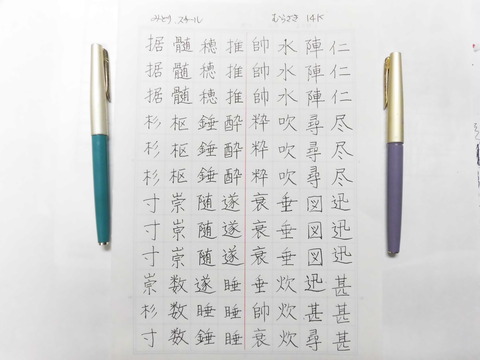 みどり スチール
むらさき 14K
仁仁仁尽尽尽迅迅迅甚甚甚
陣陣陣尋尋尋図図図迅甚尋
水水水吹吹吹垂垂垂炊炊炊
帥帥帥粋粋粋衰衰衰垂帥衰
推推推酔酔酔遂遂遂睡睡睡
穂穂穂錘錘錘随随随遂睡錘
髄髄髄枢枢枢崇崇崇数数数
据据据杉杉杉寸寸寸崇杉寸